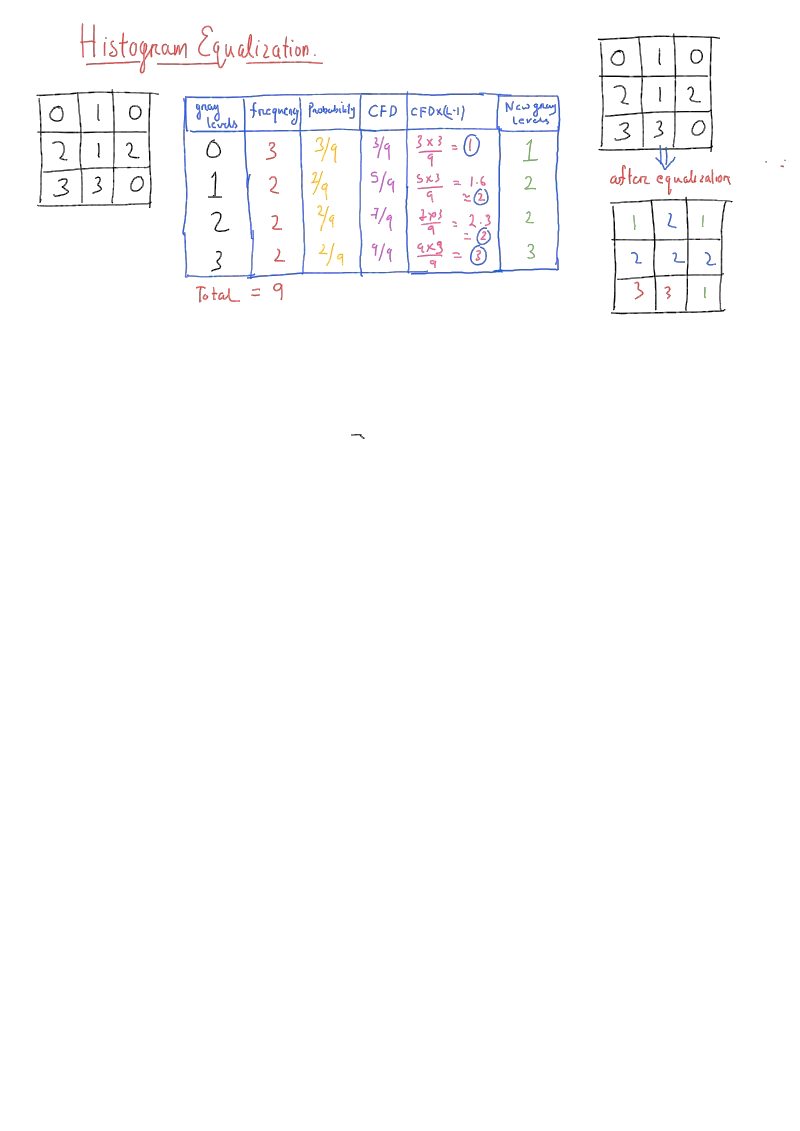 Histogram Equalization.
0 1 0
2 1 2
3 3 0
gray levels frequency Probability CFD CFDx(L-1) New gray levels
0 3 3/9 3/9 3x3/9 = 1 1
1 2 2/9 5/9 5x3/9 = 1.6 ≈ 2 2
2 2 2/9 7/9 7x3/9 = 2.3 = 2 2
3 2 2/9 9/9 9x3/9 = 3 3
Total = 9
0 1 0
2 1 2
3 3 0
after equalization
1 2 1
2 2 2
3 3 1